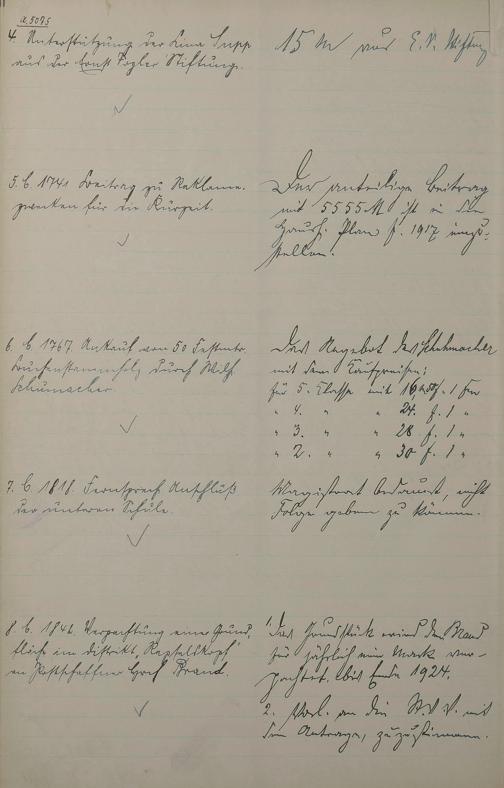 a. 5095
4. Unterstützung der Lina Supp
aus der Ernst Vogler Stiftung.
15 M aus E. V. Stiftung
5. B. 1741 Beitrag zu Reklame-
zwecken für die Kurzeit.
Der anteilige Beitrag
mit 5555 M ist in den
Haush. Plan f. 1917 einzu-
stellen.
6. B. 1767. Ankauf von 50 Festmtr.
Buchenstammholz durch Wilh.
Schumacher.
Das Angebot des Schuhmacher
mit den Kaufpreisen:
für 5. Classe mit f. 1 Fm
" 4. " " 24. f. 1 "
" 3. " " 28 f. 1 "
" 2. " " 30 f. 1 "
7. B. 1818. Fernsprech Anschluß
der unteren Schule.
Magistrat bedauert, nicht
Folge geben zu können.
8. B. 1842. Verpachtung eines Grund
stücks im Distrikt
an Postschaffner Brand.
1. Das Grundstück wird dem Brand
für jährlich eine Mark ver-
pachtet bis Ende 1924.
2. Vorl. an die St. V. V. mit
dem Antrage, zuzustimmen.